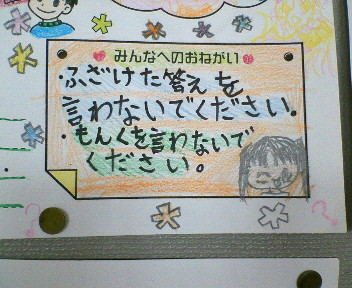 みんなへのおねがい
・ふざけた答えを
言わないでください.
・もんくを言わないで
ください。